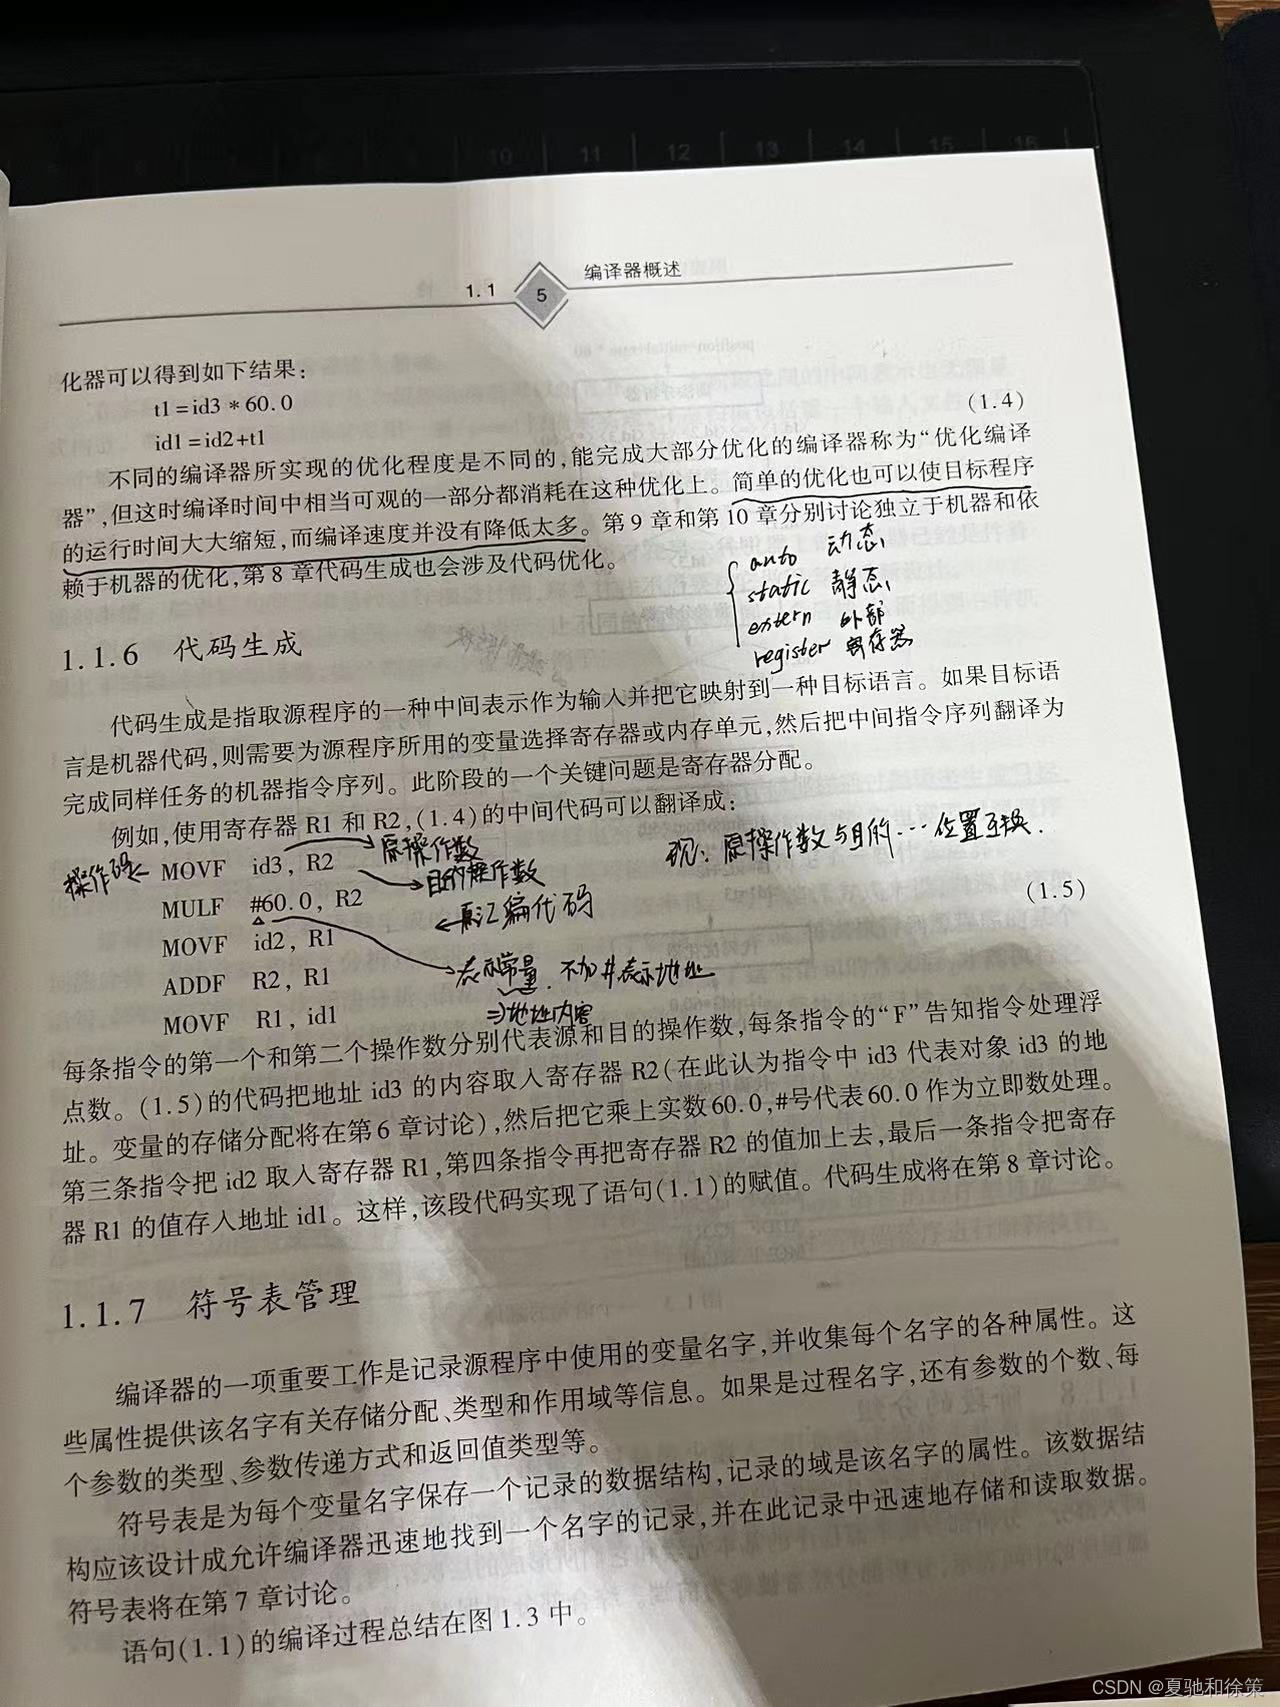 1.1 5 编译器概述
化器可以得到如下结果:
t1=id3*60.0
id1=id2+t1 (1.4)
不同的编译器所实现的优化程度是不同的,能完成大部分优化的编译器称为“优化编译
器”,但这时编译时间中相当可观的一部分都消耗在这种优化上。简单的优化也可以使目标程序
的运行时间大大缩短,而编译速度并没有降低太多。第9章和第10章分别讨论独立于机器和依
赖于机器的优化,第8章代码生成也会涉及代码优化。
auto 动态
static 静态
extern 外部
register 寄存器
1.1.6 代码生成
代码生成是指取源程序的一种中间表示作为输入并把它映射到一种目标语言。如果目标语
言是机器代码,则需要为源程序所用的变量选择寄存器或内存单元,然后把中间指令序列翻译为
完成同样任务的机器指令序列。此阶段的一个关键问题是寄存器分配。
例如,使用寄存器 R1 和 R2,(1.4)的中间代码可以翻译成:
操作码 MOVF id3, R2 原操作数
现: 原操作数与目的…位置互换.
目的操作数
MULF #60.0, R2 (1.5)
汇编代码
MOVF id2, R1
表示常量. 不加#表示地址
ADDF R2, R1
⇒地址内容
MOVF R1, id1
每条指令的第一个和第二个操作数分别代表源和目的操作数,每条指令的“F”告知指令处理浮
点数。(1.5)的代码把地址 id3 的内容取入寄存器 R2(在此认为指令中 id3 代表对象 id3 的地
址。变量的存储分配将在第6章讨论),然后把它乘上实数60.0,#号代表60.0作为立即数处理。
第三条指令把 id2 取入寄存器 R1,第四条指令再把寄存器 R2 的值加上去,最后一条指令把寄存
器 R1 的值存入地址 id1。这样,该段代码实现了语句(1.1)的赋值。代码生成将在第8章讨论。
1.1.7 符号表管理
编译器的一项重要工作是记录源程序中使用的变量名字,并收集每个名字的各种属性。这
些属性提供该名字有关存储分配、类型和作用域等信息。如果是过程名字,还有参数的个数、每
个参数的类型、参数传递方式和返回值类型等。
符号表是为每个变量名字保存一个记录的数据结构,记录的域是该名字的属性。该数据结
构应该设计成允许编译器迅速地找到一个名字的记录,并在此记录中迅速地存储和读取数据。
符号表将在第7章讨论。
语句(1.1)的编译过程总结在图1.3中。
CSDN @夏驰和徐策